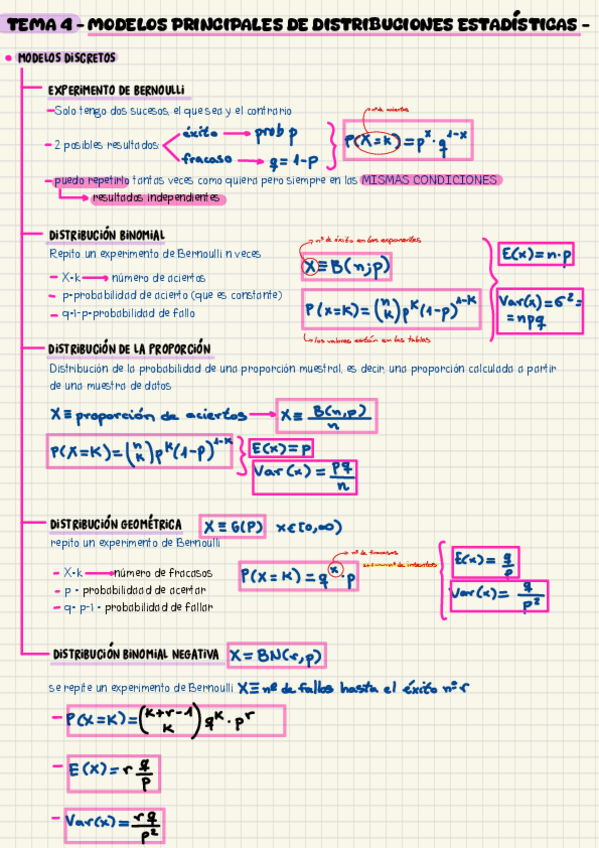 TEMA 4 - MODELOS PRINCIPALES DE DISTRIBUCIONES ESTADÍSTICAS -
MODELOS DISCRETOS
EXPERIMENTO DE BERNOULLI
- Solo tengo dos sucesos, el que sea y el contrario
nº de aciertos
- 2 posibles resultados:
éxito → prob p
fracaso → q = 1-p
P(X=K) = p^x · q^(1-x)
- puedo repetirlo tantas veces como quiera pero siempre en las MISMAS CONDICIONES
→ resultados independientes
DISTRIBUCIÓN BINOMIAL
Repito un experimento de Bernoulli n veces
- X=k → número de aciertos
- p=probabilidad de acierto (que es constante)
- q=1-p=probabilidad de fallo
nº de éxito en los exponentes
X ≡ B(n;p)
P(x=K) = (n K) p^K (1-p)^(1-K)
los valores están en las tablas
E(x) = n·p
Var(x) = σ² =
= npq
DISTRIBUCIÓN DE LA PROPORCIÓN
Distribución de la probabilidad de una proporción muestral, es decir, una proporción calculada a partir
de una muestra de datos
X ≡ proporción de aciertos → X ≡ B(n,p)/n
P(X=K) = (n K) p^K (1-p)^(1-K)
E(x) = p
Var(x) = pq/n
DISTRIBUCIÓN GEOMÉTRICA X ≡ G(P) x∈[0,∞)
repito un experimento de Bernoulli
- X=k → número de fracasos
- p = probabilidad de acertar
- q= p-1 = probabilidad de fallar
nº de fracasos
P(X=K) = q^x · p
nº de intentos
E(x) = q/p
Var(x) = q/p²
DISTRIBUCIÓN BINOMIAL NEGATIVA X = BN(r,p)
se repite un experimento de Bernoulli X ≡ nº de fallos hasta el éxito nº r
- P(X=K) = (K+r-1 K) q^K · p^r
- E(X) = r q/p
- Var(x) = rq/p²